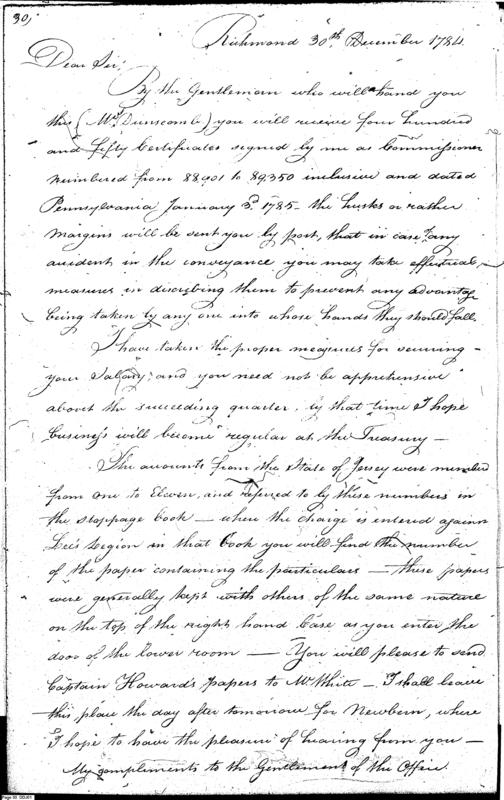 30,
Richmond 30th December 1784.
Dear Sir,
By the Gentleman who will hand you
this (Mr. Dunscomb) you will receive four hundred
and fifty Certificates signed by me as Commissioner
numbered from 88,901 to 89,350 inclusive and dated
Pennsylvania January 3d. 1785 - the husks or rather
Margins will be sent you by post, that in case of any
accident in the conveyance you may take effectual
measures in describing them to prevent any advantage
being taken by any one into whose hands they should fall.
I have taken the proper measures for securing
your Salary, and you need not be apprehensive
about the succeeding quarter, by that time I hope
business will become regular at the Treasury —
The accounts from the State of Jersey were numbered
from one to Eleven, and referred to by these numbers in
the stoppage book — where the charge is entered against
Lee's Legion in that book you will find the number
of the paper containing the particulars — these papers
were generally kept with others of the same nature
on the top of the right hand Case as you enter the
door of the lower room — You will please to send
Captain Howard's papers to Mr White — I shall leave
this place the day after tomorrow for Newbern, where
I hope to have the pleasure of hearing from you —
My compliments to the Gentlemen of the Office.